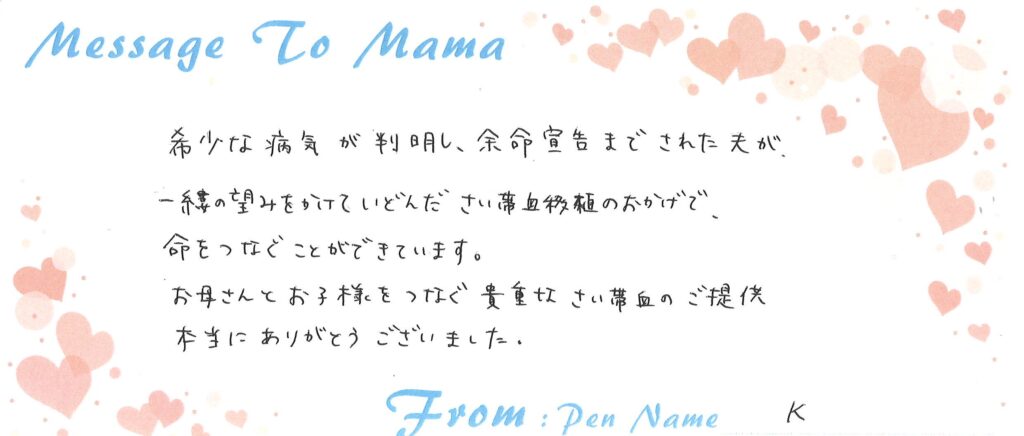 Message To Mama
希少な病気が判明し、余命宣告までされた夫が、
一縷の望みをかけていどんださい帯血移植のおかげで、
命をつなぐことができています。
お母さんとお子様をつなぐ貴重なさい帯血のご提供
本当にありがとうございました。
From : Pen Name K